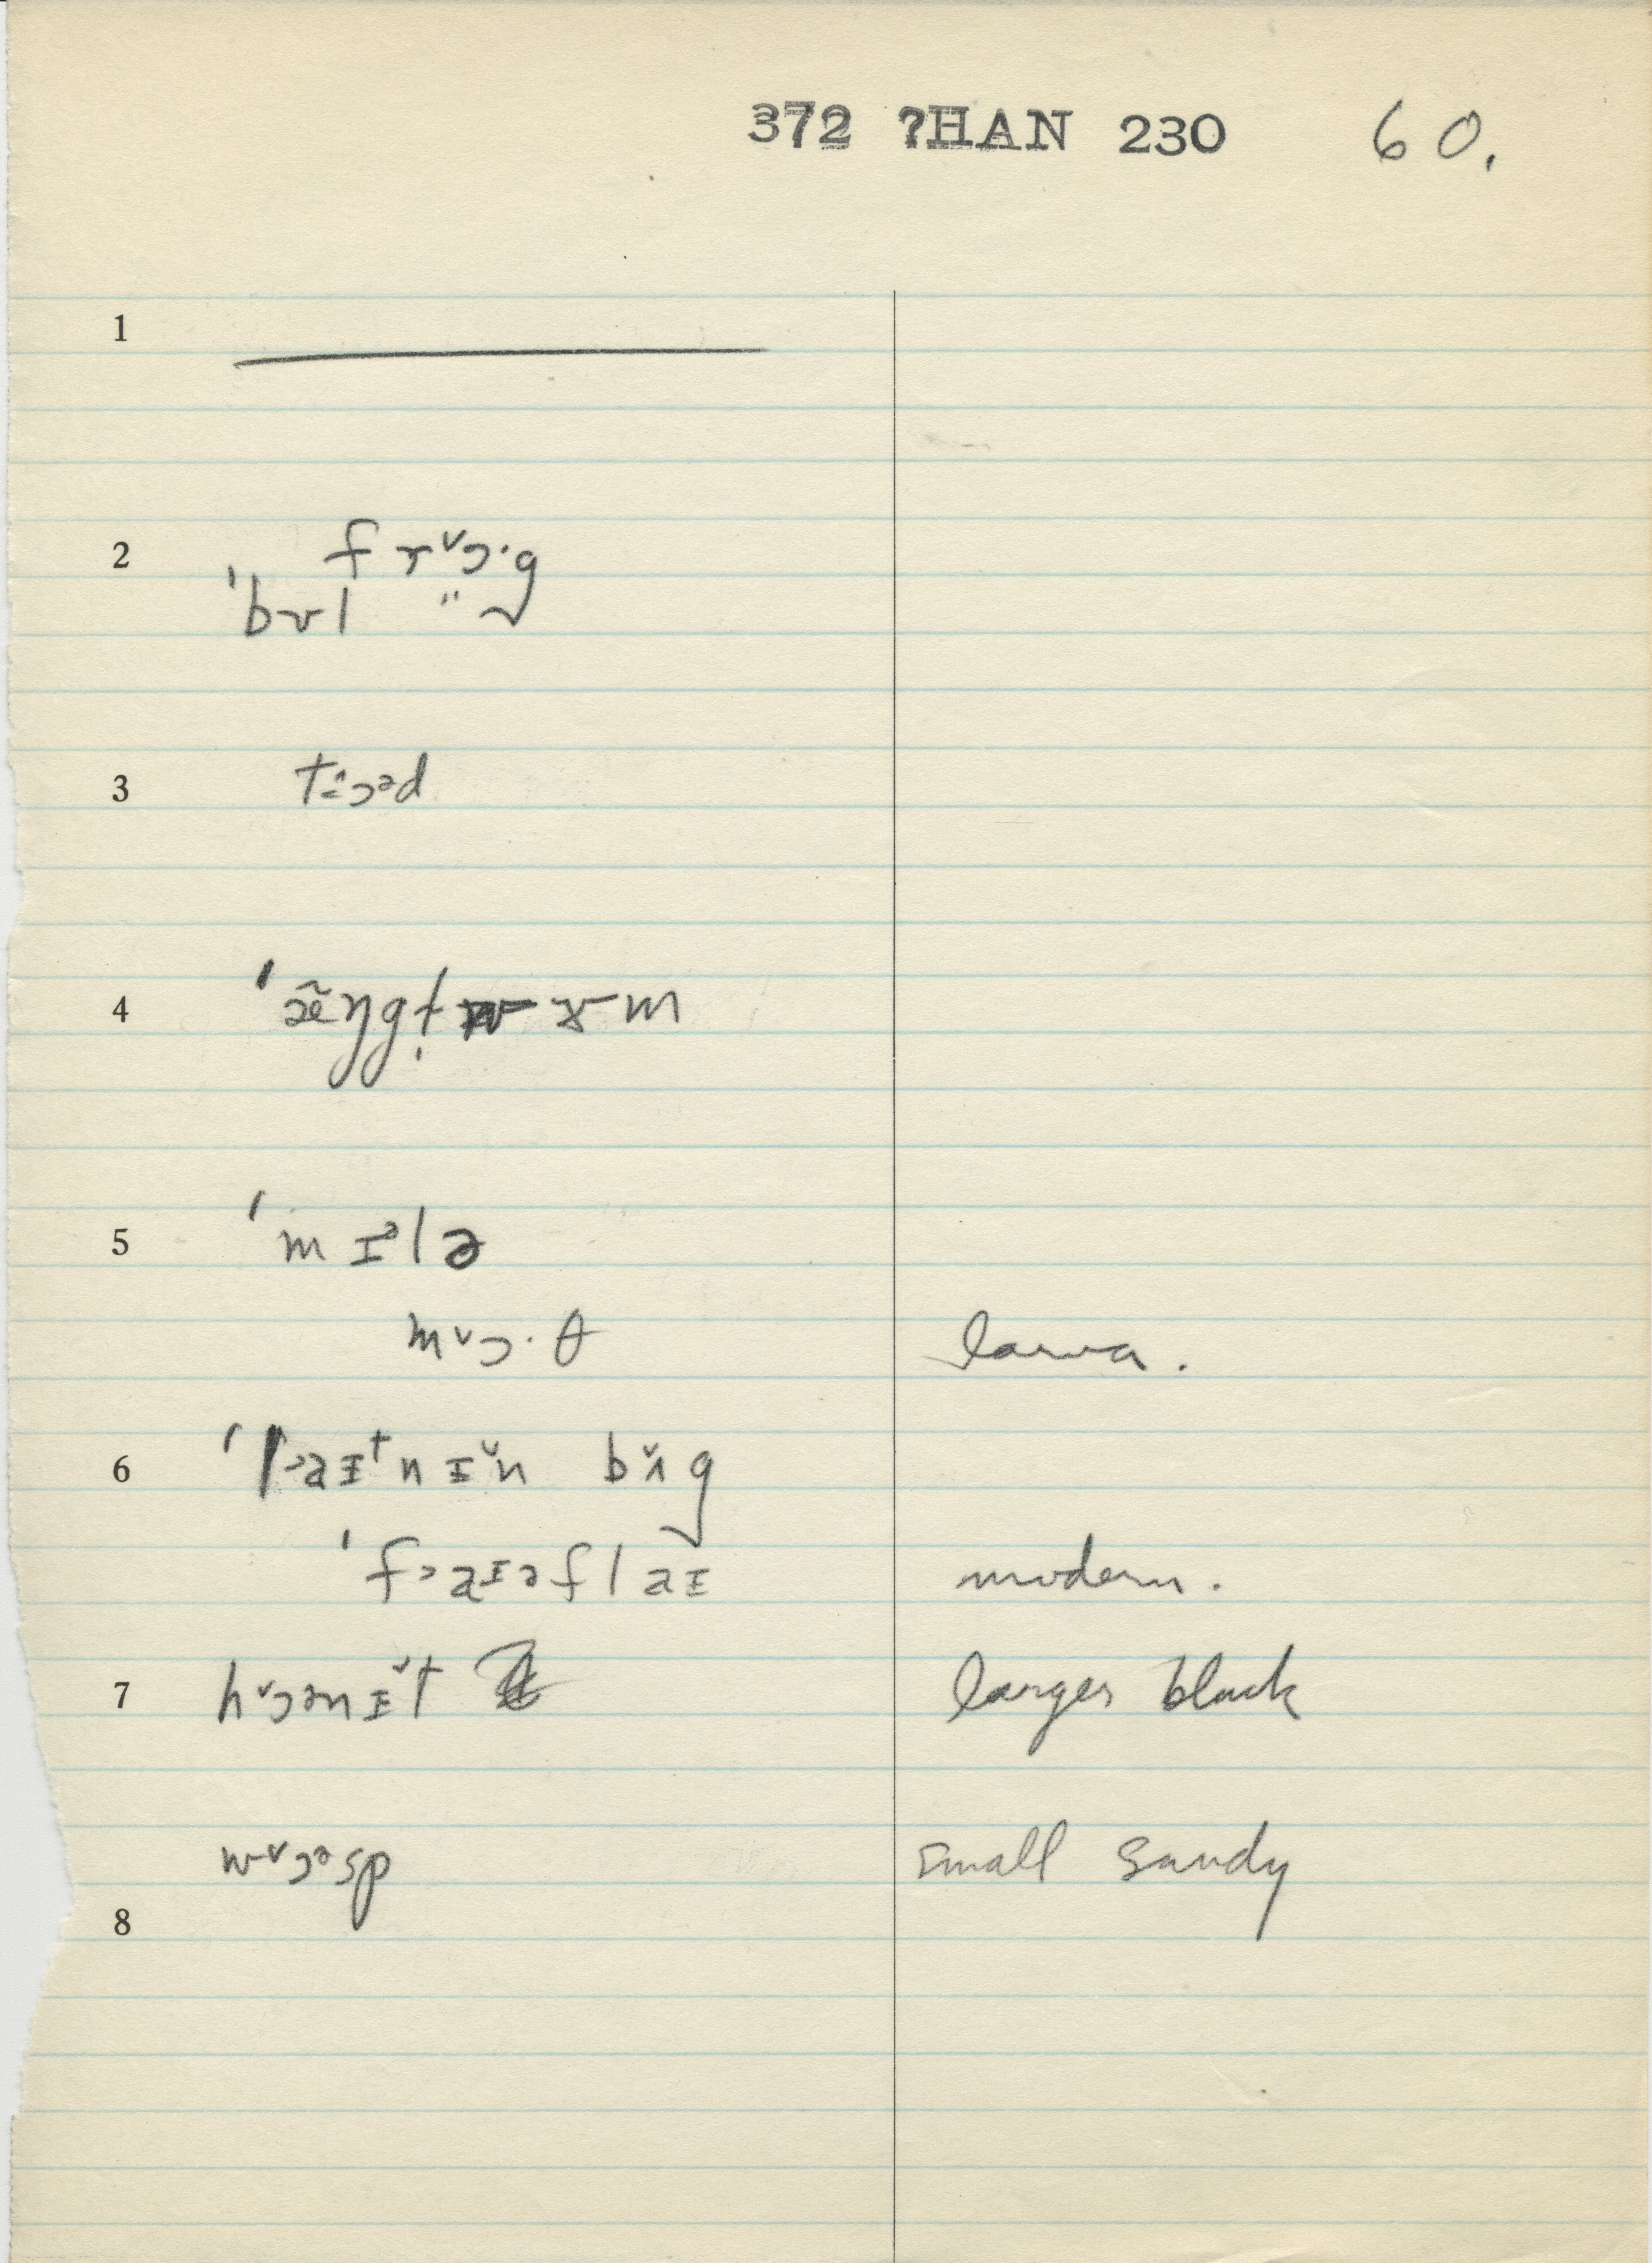 372 ?HAN 230 60.
1
2 f r ᵛɔ·g
ˈbʊl " g
3 t
4 ˈæ̃ŋgɫ ɤ m
5 ˈm ɪᵊlə
m ᵛɔ·θ larva.
6 ˈlɑɪᵗnɪ̌n bʌ̌g
ˈf˃aɪəflaɪ modern.
7 hᵛɔənɪ̌t larger black
wᵛɔᵊsp small sandy
8